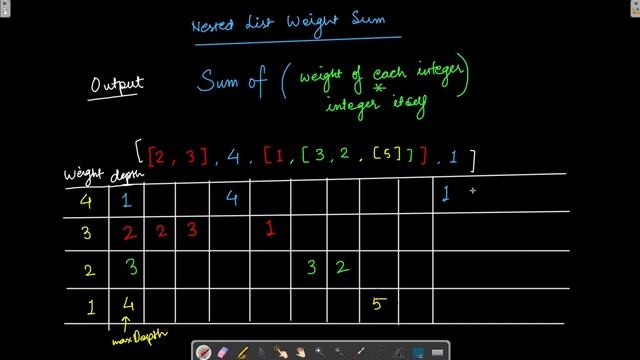 Nested List Weight Sum
Output
Sum of ( weight of each integer
*
integer itself )
[ [2, 3], 4, [1, [3, 2, [5]]], 1 ]
Weight depth
4 1 4 1
3 2 2 3 1
2 3 3 2
1 4 5
maxDepth